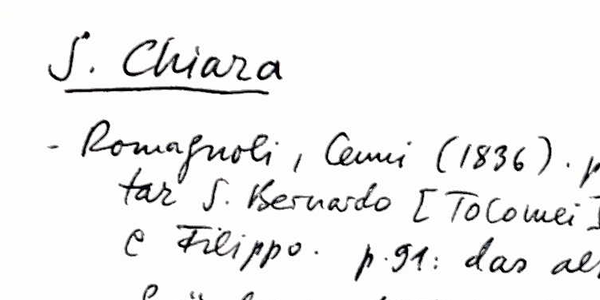 S. Chiara
- Romagnoli, Cenni (1836). p
tar S. Bernardo [Tolomei]
e Filippo. p.91: das al